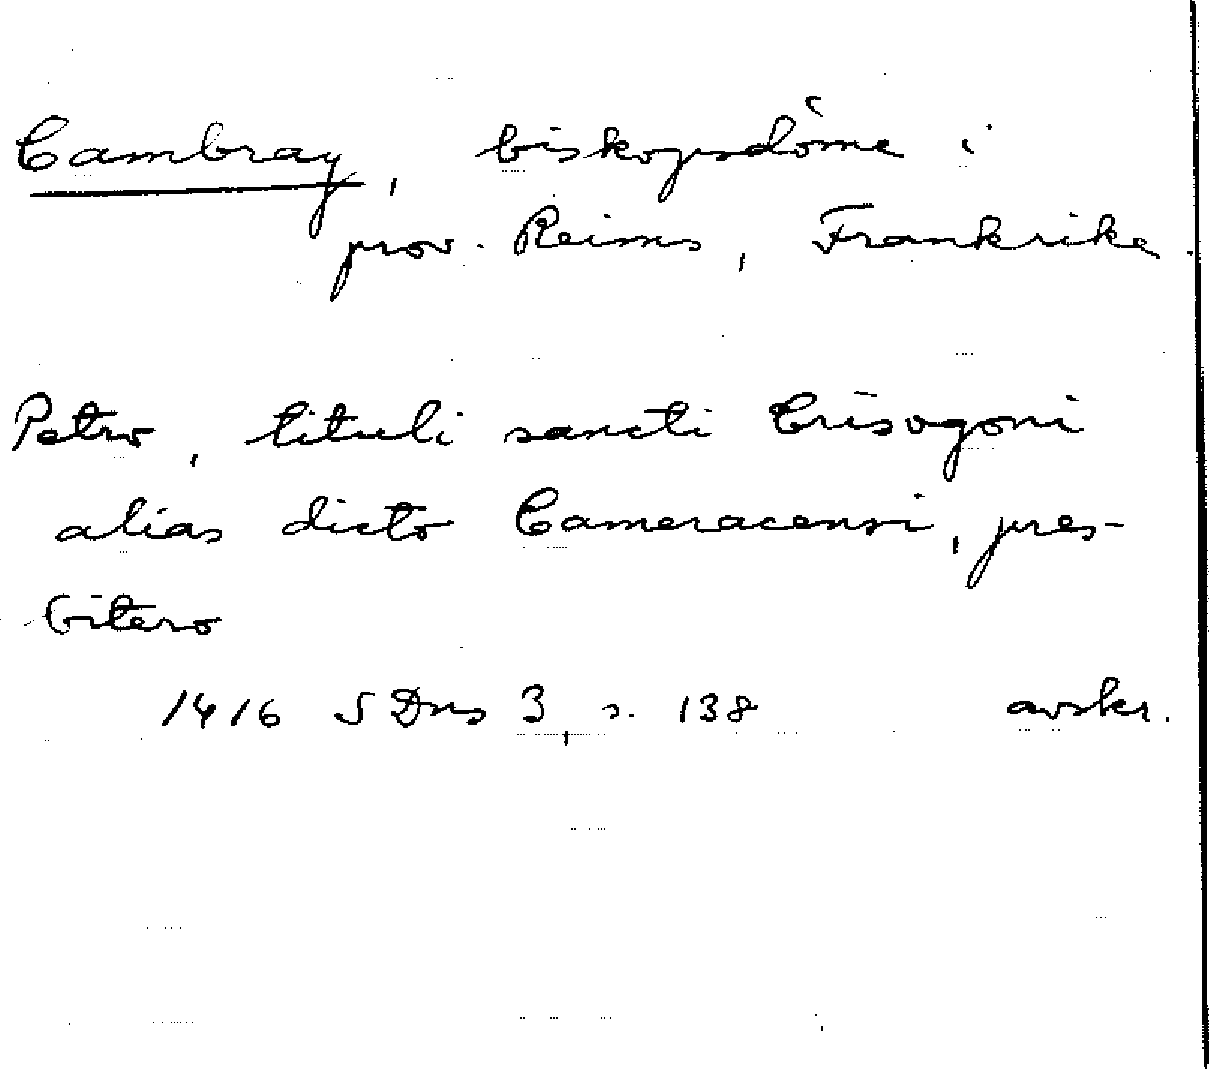 Cambray, biskopsdöme i
prov. Reims, Frankrike.
Petro, tituli sancti Crisogoni
alias dicto Cameracensi, pres-
bitero
1416 SDns 3, s. 138 avskr.